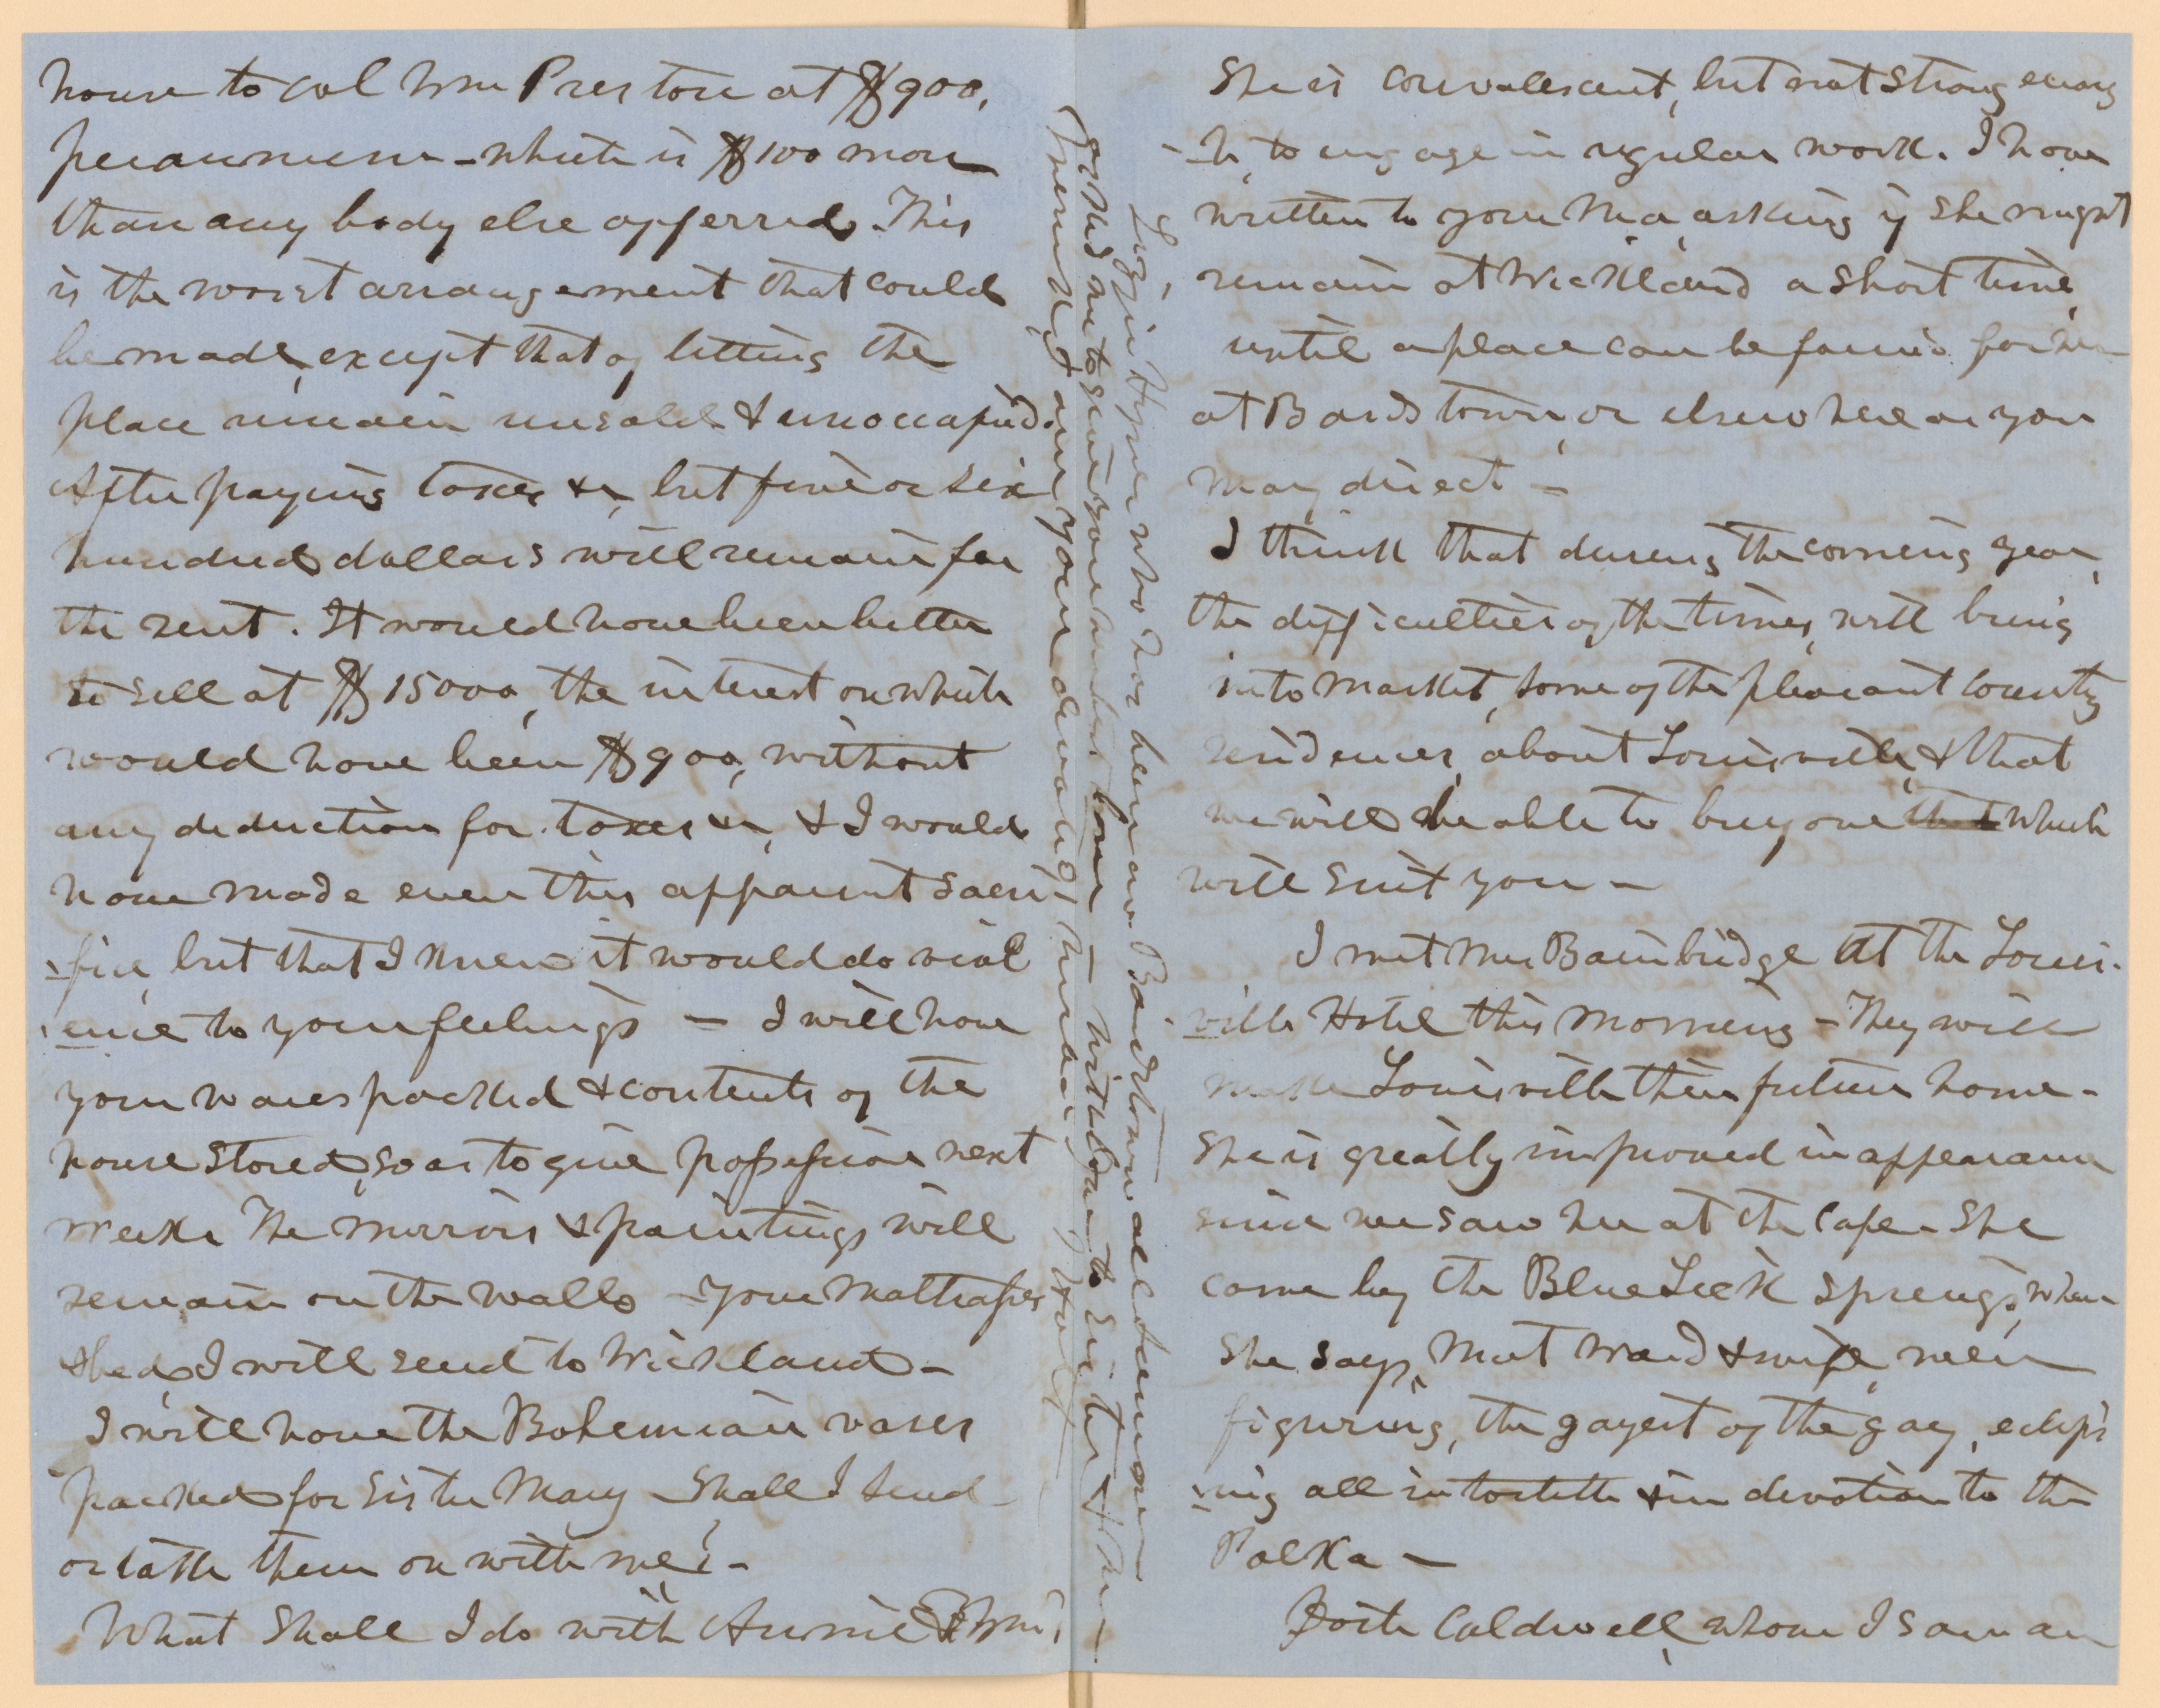 house to Col Wm Preston at $900,
per annum - which is $100 more
than any body else offerred. This
is the worst arrangement that could
be made, except that of letting the
place remain unsold & unoccupied.
After paying taxes &c, but five or six
hundred dollars will remain for
the rent. It would have been better
to sell at $15000, the interest on which
would have been $900, without
any deduction for taxes &c, & I would
have made even this apparent sacri-
-fice, but that I knew it would do viol
-ence to your feelings - I will have
your vases packed & contents of the
house stored, so as to give possession next
week. The mirrors & paintings will
remain on the walls - Your mattrasses
& beds I will send to Wickland -
I will have the Bohemian vases
packed for Sister Mary - Shall I send
or take them on with me? -
What Shall I do with Annie & Wm,
She is convalescent, but not strong enoug
-h, to engage in regular work. I have
written to your Ma, asking if She might
remain at Wickland a short time,
until a place can be found for her
at Bardstown, or elsewhere as you
may direct -
I think that during the coming year,
the difficulties of the times, will bring
into market, some of the pleasant county
residences, about Louisville, & that
we will be able to buy one that which
will suit you -
I met Mrs Bainbridge at the Louis-
ville Hotel this morning - They will
make Louisville their future home -
She is greatly improved in appearance
since we saw her at the Cape - She
came by the Blue Lick Springs, where
she says, Mat Ward & wife, were
figuring, the gayest of the gay, eclips
-ing all in toilette & in devotion to the
Polka -
Caldwell, whom I saw an
Lizzie who has been at Bardstown all summer
asked me to give you her love - With love to Sister & Ma -
I remain, as ever, your devoted husband J Holt